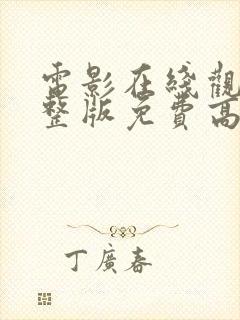 電影在綫觀
整版免費高
丁廣春